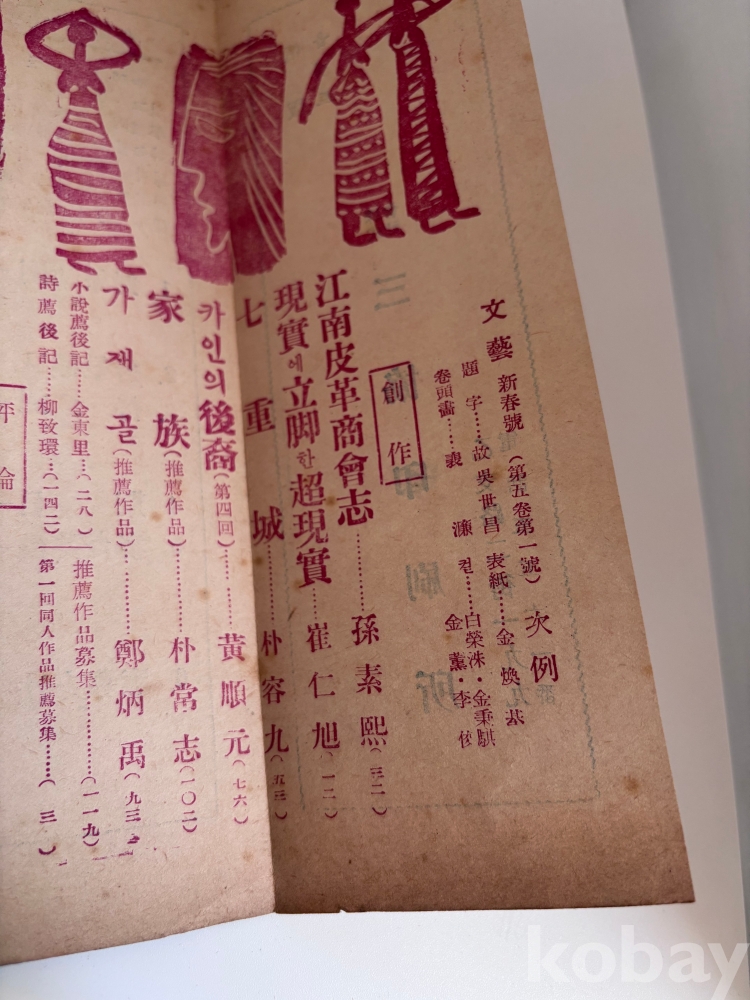 文藝 新春號 (第五卷第一號) 次例
題字……故吳世昌 表紙……金煥基
卷頭畵……裵濂 컽……白榮洙・金秉騏
金薰・李俊
創作
江南皮革商會志……孫素熙(三二)
現實에立脚한超現實……崔仁旭(一二)
七重城……朴容九(五三)
카인의後裔(第四回)……黃順元(七六)
家族(推薦作品)……朴常志(一〇二)
가재골(推薦作品)……鄭炳禹(九三)
小說薦後記……金東里…(二八)
推薦作品募集……(一一九)
詩薦後記……柳致環…(一四二)
第一回同人作品推薦募集……(三)
評論
kobay